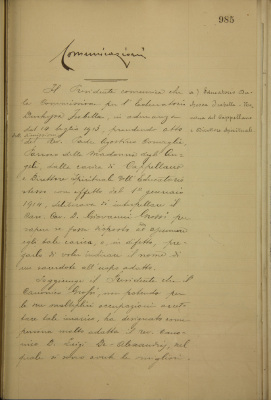 985
Comunicazioni
Il Presidente comunica che
la Commissione per l'Educatorio
Duchessa Isabella, in adunanza
del 10 luglio 1913, prendendo atto
delle dimissioni
del Rev. Padre Agostino
Parroco della Madonna degli An-
geli, dalla carica di Cappellano
e Direttore Spirituale dell'Educatorio
stesso con effetto dal 1° gennaio
1914, deliberava di interpellare il
Can. Cav. D. Giovanni Grosso per
sapere se fosse disposto ad assumere
egli tale carica, e, in difetto, pre-
garlo di voler indicare il nome di
un candidato all'uopo adatto.
Soggiunge il Presidente che il
Canonico Grosso, non potendo per
le sue molteplici occupazioni accet-
tare tale incarico, ha designato come
persona molto adatta il rev. Cano-
nico D. Luigi De-Alexandris, del
quale si sono avute le migliori
a) Educatorio Du-
chessa Isabella
del Cappellano
e Direttore Spirituale